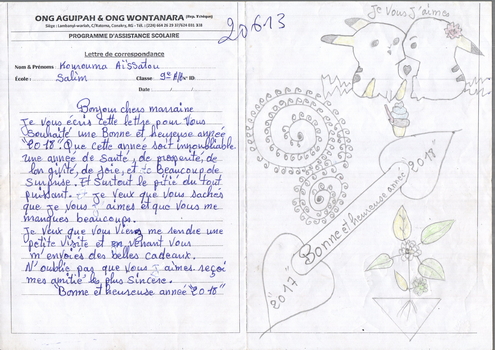 ONG AGUIPAH & ONG WONTANARA (Rep. Tchèque)
PROGRAMME D'ASSISTANCE SCOLAIRE
20613
Lettre de correspondance
Nom & Prénoms : Kourouma Aïssatou
École : Salim Classe 9e ID:
Date / /
Bonjour chers marraine
Je vous écris cette lettre pour Vous
Souhaité une Bonne et heureuse année
"2018". Que cette année soit innoubliable
une année de Santé, de prosperité, de
longivité, de joie, et Beaucoup de
Surprise. Et Surtout le pitié du tout
puissant. Je veux que Vous sachés
que je vous aimes et que Vous me
manques beaucoups.
Je veux que Vous Vienez me rendre une
petite visite et en venant Vous
m'envoies des belles cadeaux.
N'oublié pas que Vous aimes reçoi
mes amitié les plus sincère.
Bonne et heureuse année "2018"
Je vous j'aimes
2018"
Bonne et heureuse année
2017"